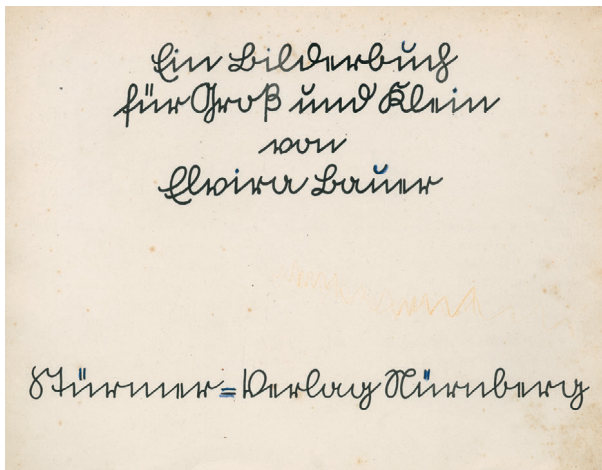 Ein Bilderbuch
für Groß und Klein
von
Elvira Bauer
Stürmer=Verlag Nürnberg